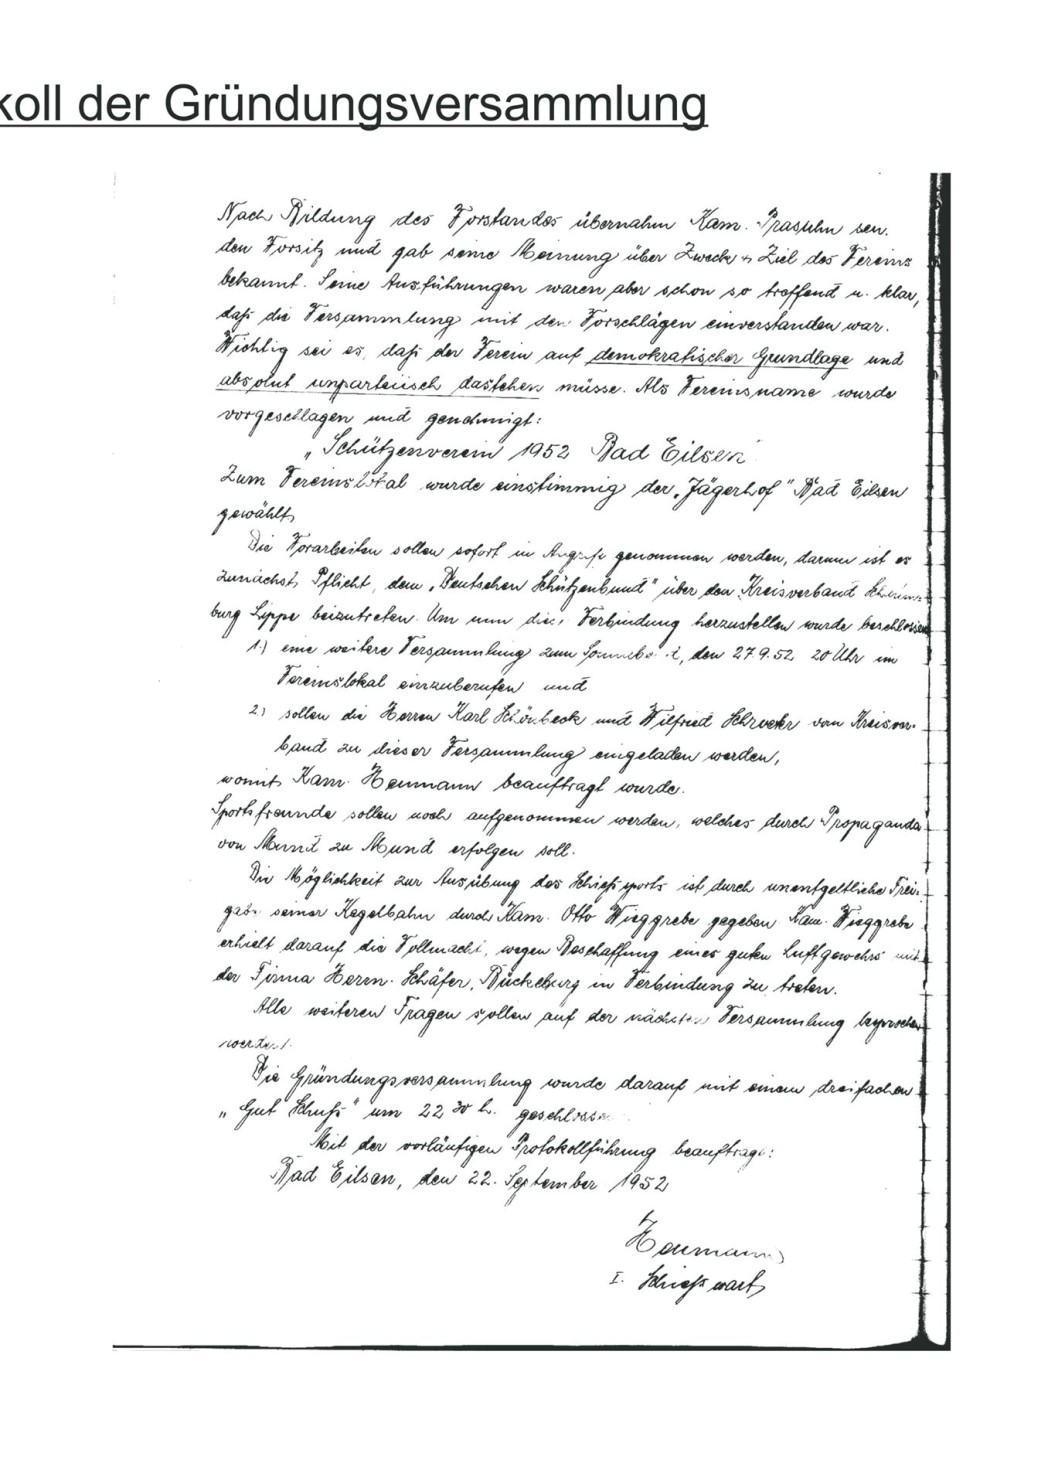 koll der Gründungsversammlung
Nach Bildung des Vorstandes übernahm Kam. Prasuhn sen.
den Vorsitz und gab seine Meinung über Zweck u. Ziel des Vereins
bekannt. Seine Ausführungen waren aber schon so treffend u. klar,
daß die Versammlung mit den Vorschlägen einverstanden war.
Wichtig sei es, daß der Verein auf demokratischer Grundlage und
absolut unparteiisch dastehen müsse. Als Vereinsname wurde
vorgeschlagen und genehmigt:
„Schützenverein 1952 Bad Eilsen"
Zum Vereinslokal wurde einstimmig der „Jägerhof" Bad Eilsen
gewählt.
Die Vorarbeiten sollen sofort in Angriff genommen werden, darum ist es
zunächst Pflicht, dem „Deutschen Schützenbund" über den Kreisverband Schaum-
burg Lippe beizutreten. Um nun diese Verbindung herzustellen wurde beschlossen
1.) eine weitere Versammlung zum Sonnabend, den 27.9.52 20 Uhr im
Vereinslokal einzuberufen und
2.) sollen die Herren Karl Schönbeck und Wilfried vom Kreisver-
band zu dieser Versammlung eingeladen werden,
womit Kam. Heumann beauftragt wurde.
Sportsfreunde sollen noch aufgenommen werden, welches durch Propaganda
von Mund zu Mund erfolgen soll.
Die Möglichkeit zur Ausübung des Schießsports ist durch unentgeltliche Frei-
gabe seiner Kegelbahn durch Kam. Otto Wieggrebe gegeben. Kam. Wieggrebe
erhielt darauf die Vollmacht, wegen Beschaffung eines guten Luftgewehrs mit
der Firma Herrn. Schäfer, Bückeburg in Verbindung zu treten.
Alle weiteren Fragen sollen auf der nächsten Versammlung besprochen
werden.
Die Gründungsversammlung wurde darauf mit einem dreifachen
„Gut Schuß" um 22 30 h. geschlossen
Mit der vorläufigen Protokollführung beauftragt:
Bad Eilsen, den 22. September 1952
Heumann
I. Schießwart